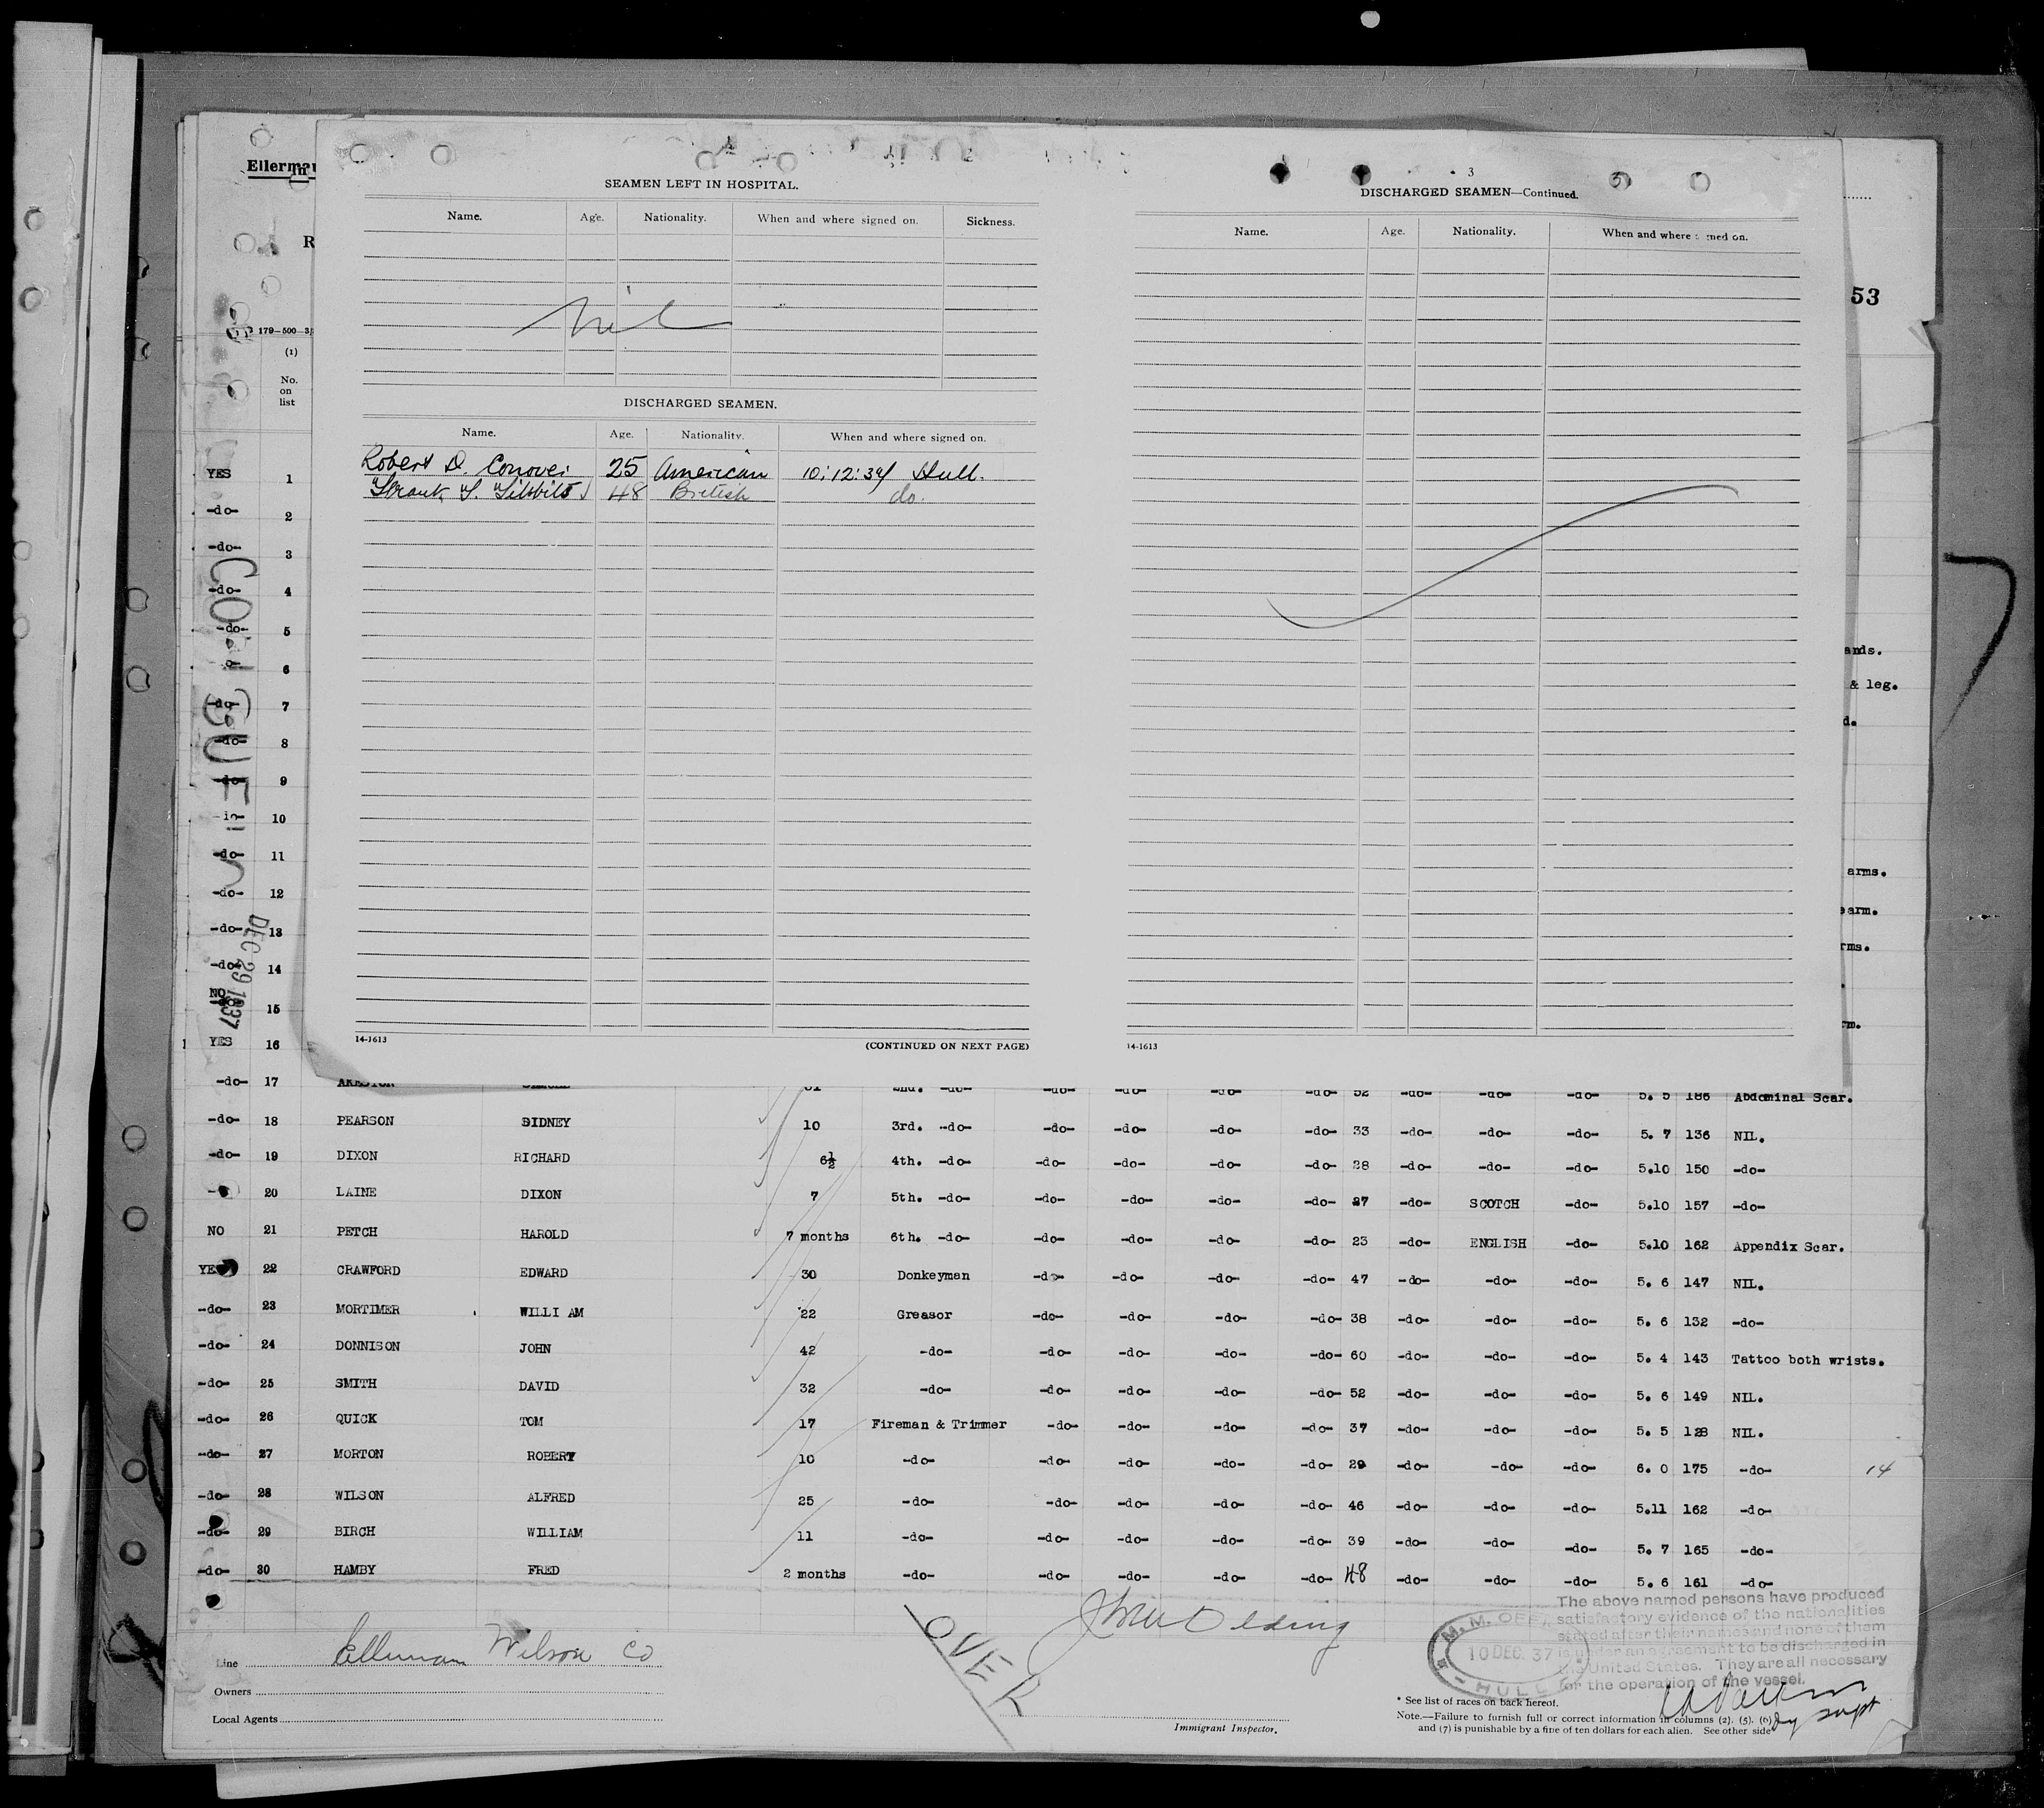 SEAMEN LEFT IN HOSPITAL.
Name. Age. Nationality. When and where signed on. Sickness.
nil
DISCHARGED SEAMEN.
Name. Age. Nationality. When and where signed on.
Robert D. 25 American Hull.
48 British do.
14-1613
(CONTINUED ON NEXT PAGE)
3
DISCHARGED SEAMEN—Continued.
Name. Age. Nationality. When and where signed on.
14-1613
53
(1)
No.
on
list
YES 1
-do- 2
-do- 3
-do- 4
-do- 5
6
-do- 7
-do- 8
-do- 9
10
-do- 11
-do- 12
-do- 13
-do- 14
NO 15
YES 16
DEC 29 1937
& leg.
arms.
-do- 17 2nd. -do- -do- -do- -do- -do- 52 -do- -do- -do- 5. 5 186 Abdominal Scar.
-do- 18 PEARSON SIDNEY 10 3rd. -do- -do- -do- -do- -do- 33 -do- -do- -do- 5. 7 136 NIL.
-do- 19 DIXON RICHARD 6½ 4th. -do- -do- -do- -do- -do- 28 -do- -do- -do- 5.10 150 -do-
20 LAINE DIXON 7 5th. -do- -do- -do- -do- -do- 27 -do- SCOTCH -do- 5.10 157 -do-
NO 21 PETCH HAROLD 7 months 6th. -do- -do- -do- -do- -do- 23 -do- ENGLISH -do- 5.10 162 Appendix Scar.
YES 22 CRAWFORD EDWARD 30 Donkeyman -do- -do- -do- -do- 47 -do- -do- -do- 5. 6 147 NIL.
-do- 23 MORTIMER WILLI AM 22 Greasor -do- -do- -do- -do- 38 -do- -do- -do- 5. 6 132 -do-
-do- 24 DONNISON JOHN 42 -do- -do- -do- -do- -do- 60 -do- -do- -do- 5. 4 143 Tattoo both wrists.
-do- 25 SMITH DAVID 32 -do- -do- -do- -do- -do- 52 -do- -do- -do- 5. 6 149 NIL.
-do- 26 QUICK TOM 17 Fireman & Trimmer -do- -do- -do- -do- 37 -do- -do- -do- 5. 5 128 NIL.
-do- 27 MORTON ROBERT 10 -do- -do- -do- -do- -do- 29 -do- -do- -do- 6. 0 175 -do- 14
-do- 28 WILSON ALFRED 25 -do- -do- -do- -do- -do- 46 -do- -do- -do- 5.11 162 -do-
-do- 29 BIRCH WILLIAM 11 -do- -do- -do- -do- -do- 39 -do- -do- -do- 5. 7 165 -do-
-do- 30 HAMBY FRED 2 months -do- -do- -do- -do- -do- 48 -do- -do- -do- 5. 6 161 -do-
Line Ellerman Wilson Co
Owners
Local Agents
OVER
Immigrant Inspector.
10 DEC. 37
HULL
The above named persons have produced
satisfactory evidence of the nationalities
stated after their names and none of them
is under an agreement to be discharged in
the United States. They are all necessary
for the operation of the vessel.
* See list of races on back hereof.
Note.—Failure to furnish full or correct information in columns (2), (5), (6)
and (7) is punishable by a fine of ten dollars for each alien. See other side